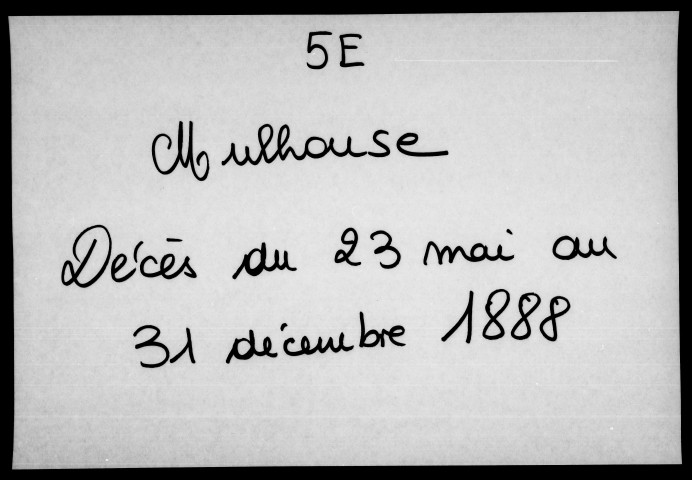 5E
Mulhouse
Décès du 23 mai au
31 décembre 1888